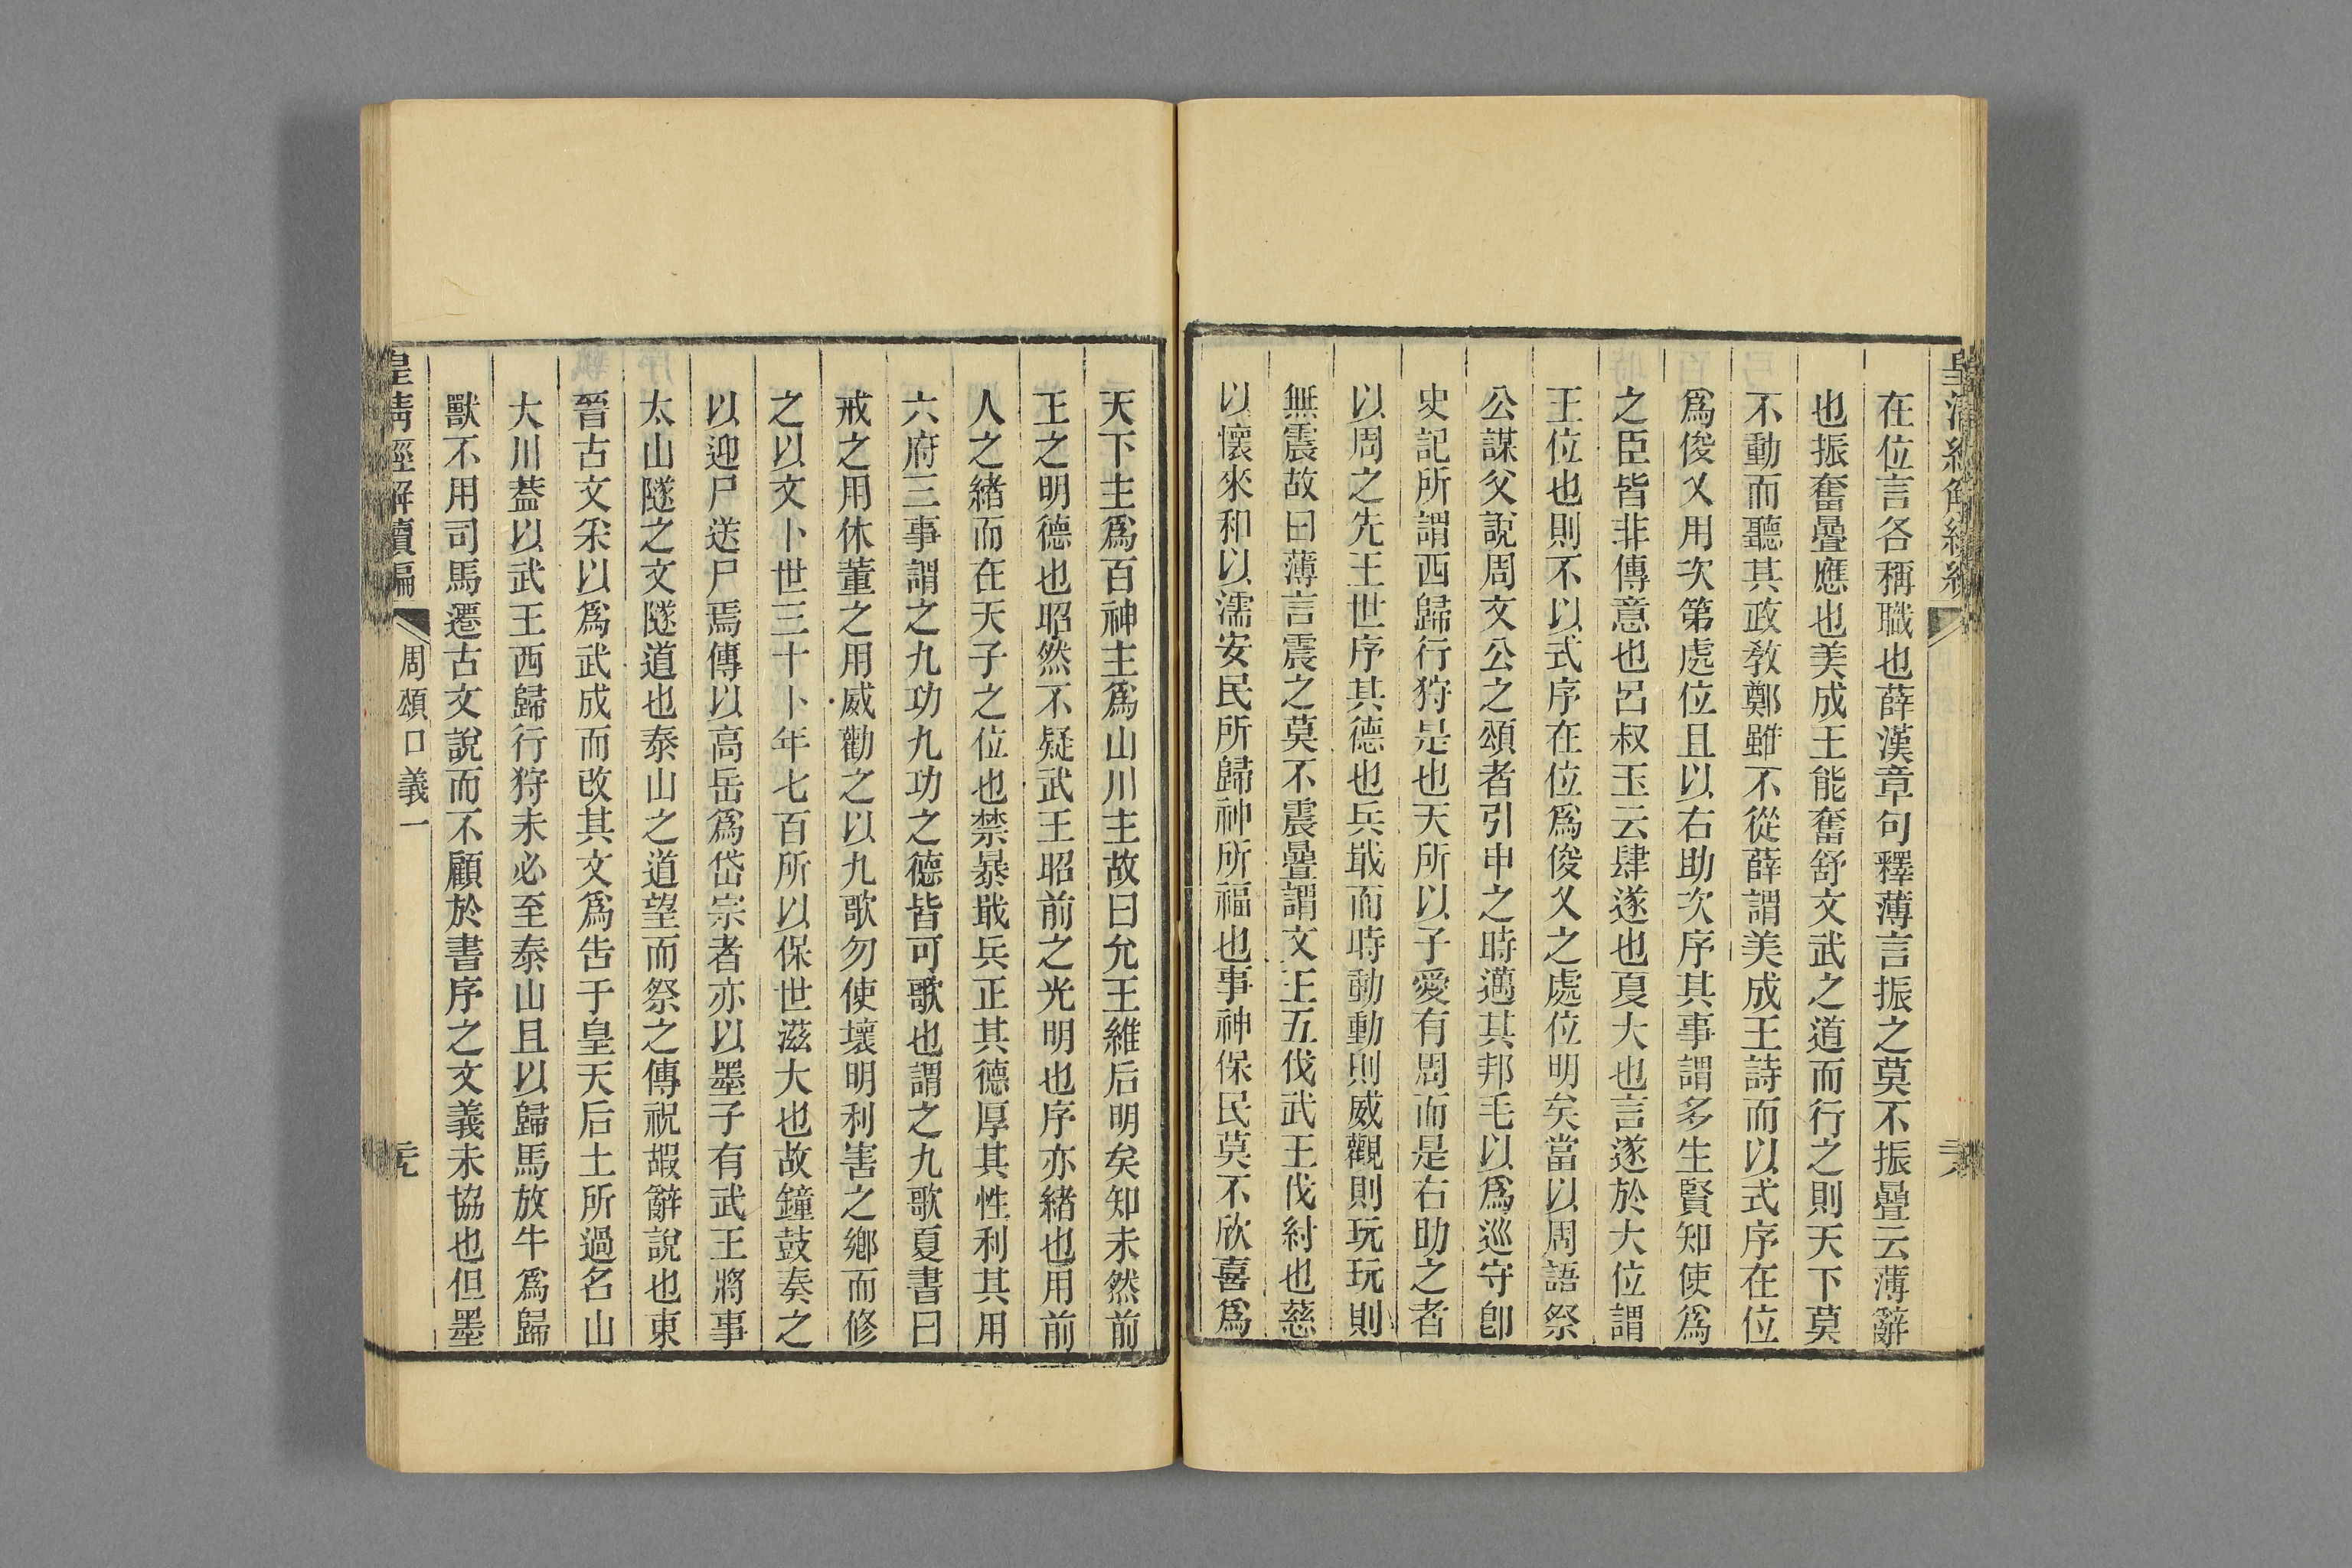 皇清經解續編
在位言各稱職也薛漢章句釋薄言振之莫不振疊云薄辭
也振奮疊應也美成王能奮舒文武之道而行之則天下莫
不動而聽其政敎鄭雖不從薛謂美成王詩而以式序在位
爲俊乂用次第處位且以右助次序其事謂多生賢知使爲
之臣皆非傳意也呂叔玉云肆遂也夏大也言遂於大位謂
王位也則不以式序在位爲俊乂之處位明矣當以周語祭
公謀父說周文公之頌者引申之時邁其邦毛以爲巡守卽
史記所謂西歸行狩是也天所以子愛有周而是右助之者
以周之先王世序其德也兵戢而時動動則威觀則玩玩則
無震故曰薄言震之莫不震疊謂文王五伐武王伐紂也慈
以懷來和以濡安民所歸神所福也事神保民莫不欣喜爲
天下主爲百神主爲山川主故曰允王維后明矣知未然前
王之明德也昭然不疑武王昭前之光明也序亦緒也用前
人之緒而在天子之位也禁暴戢兵正其德厚其性利其用
六府三事謂之九功九功之德皆可歌也謂之九歌夏書曰
戒之用休董之用威勸之以九歌勿使壞明利害之鄉而修
之以文卜世三十卜年七百所以保世滋大也故鐘鼓奏之
以迎尸送尸焉傳以高岳爲岱宗者亦以墨子有武王將事
太山隧之文隧道也泰山之道望而祭之傳祝嘏辭說也東
晉古文采以爲武成而改其文爲告于皇天后土所過名山
大川蓋以武王西歸行狩未必至泰山且以歸馬放牛爲歸
獸不用司馬遷古文說而不顧於書序之文義未協也但墨
皇清經解續編 周頌口義一